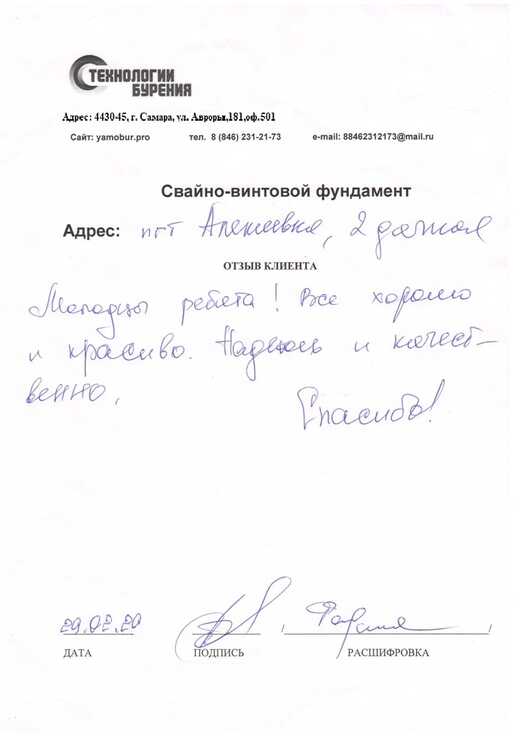 ТЕХНОЛОГИИ
БУРЕНИЯ
Адрес: 4430-45, г. Самара, ул. Авроры,181,оф.501
Сайт: yamobur.pro тел. 8 (846) 231-21-73 e-mail: 88462312173@mail.ru
Свайно-винтовой фундамент
Адрес: пгт Алексеевка, 2 дачная
ОТЗЫВ КЛИЕНТА
Молодцы ребята! Все хорошо
и красиво. Надеюсь и качест-
венно,
Спасибо!
29.02.20
ДАТА ПОДПИСЬ РАСШИФРОВКА